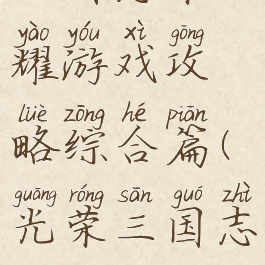 yào yóu xì gōng
耀游戏攻
lüè zōng hé piān
略综合篇(
guāng róng sān guó zhì
光荣三国志